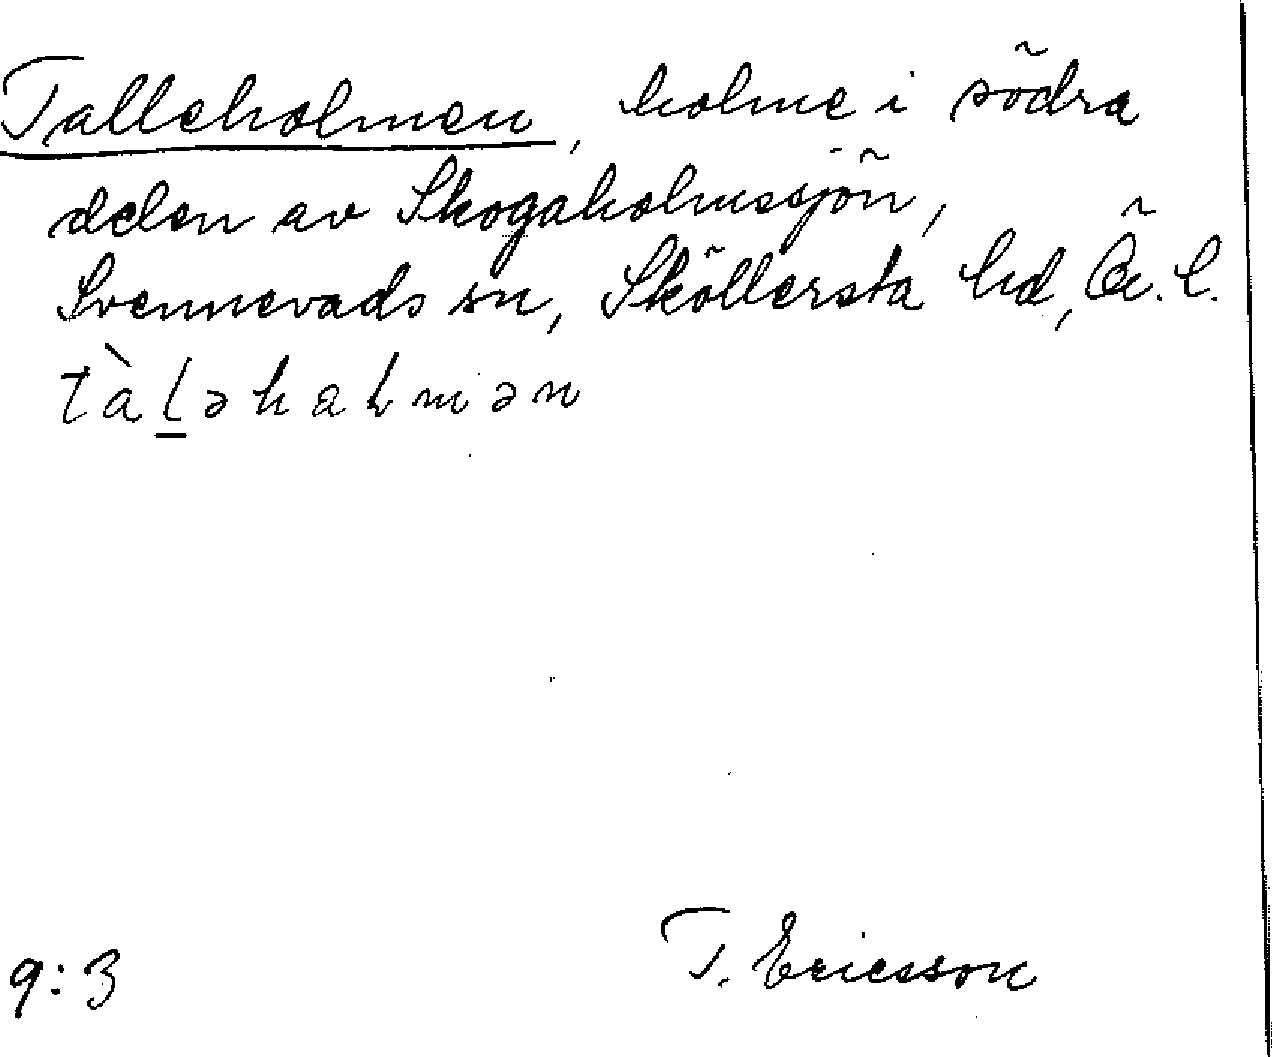 Talleholmen, holme i södra
delen av Skogaholmssjön,
Svennevads sn, Sköllersta hd, Ör. l.
tàl̲əhaɫmən
9:3 T. Ericsson